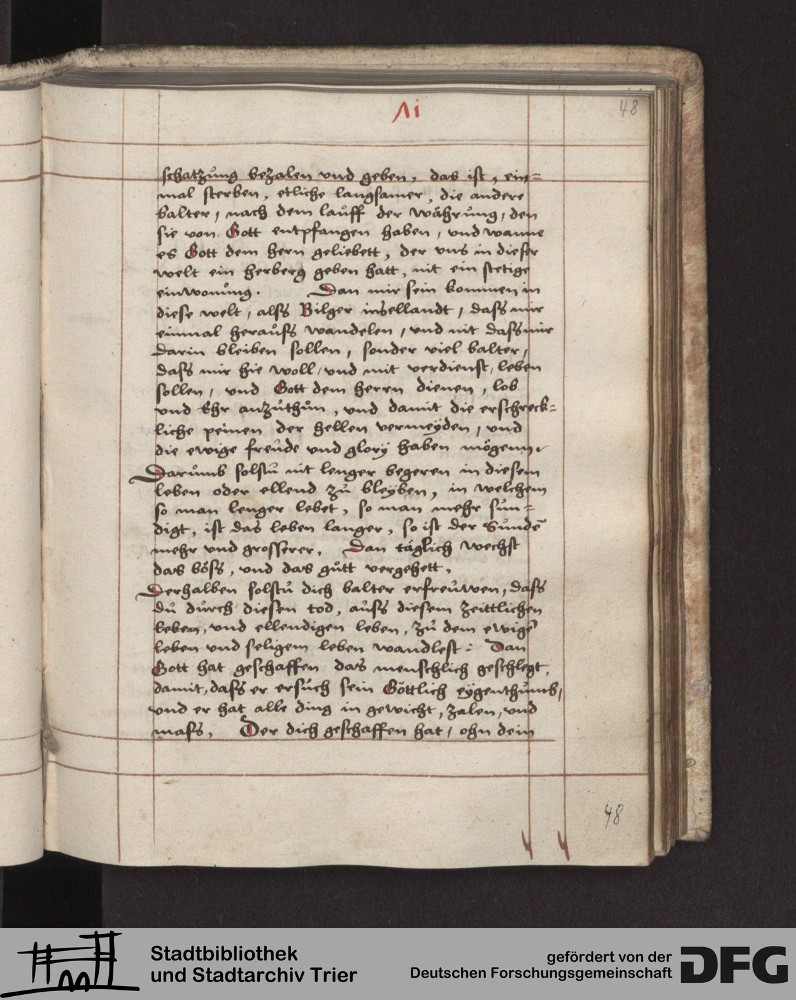 vi
48
schatzŭng bezalen vnd geben, das ist, ein=
mal sterben, etliche langsamer, die andere
balter, nach dem laŭff der währŭng, den
sie von Gott entpfangen haben, vnd wanne
es Gott dem hern geliebett, der vns in dieser
welt ein herberg geben hatt, nit ein stetige
einwonŭng. Dan mir sein kommen in
diese welt, alss Bilger insellandt, dass mir
einmal heraŭss wandelen, vnd nit dass mir
darin bleiben sollen, sonder viel balter,
dass mir hie woll, vnd mit verdienst, leben
sollen, vnd Gott dem herrn dienen, lob
vnd Ehr anzŭthŭn, vnd damit die erschreck=
liche peinen der hellen vermeÿden, vnd
die ewige freŭde vnd glorÿ haben mögenn.
Darŭmb solstŭ nit lenger begeren in diesem
leben oder ellend zŭ bleÿben, in welchem
so man lenger lebet, so man mehr sŭn=
digt, ist das leben langer, so ist der Sŭnde
mehr vnd grosserer. Dan täglich wechst
das böss, vnd das gŭtt vergehett.
Derhalben solstŭ dich balter erfreŭwen, dass
dŭ dŭrch diesen tod, aŭss diesem zeittlichen
leben, vnd ellendigen leben, zŭ dem ewigē
leben vnd seligem leben wandlest: Dan
Gott hat geschaffen das menschlich geschlegt,
damit, dass er ersŭch sein Göttlich eÿgenthŭmb,
vnd er hat alle ding in gewicht, zalen, vnd
mass. Der dich geschaffen hat, ohn dein
48
Stadtbibliothek
und Stadtarchiv Trier
gefördert von der
Deutschen Forschungsgemeinschaft
DFG